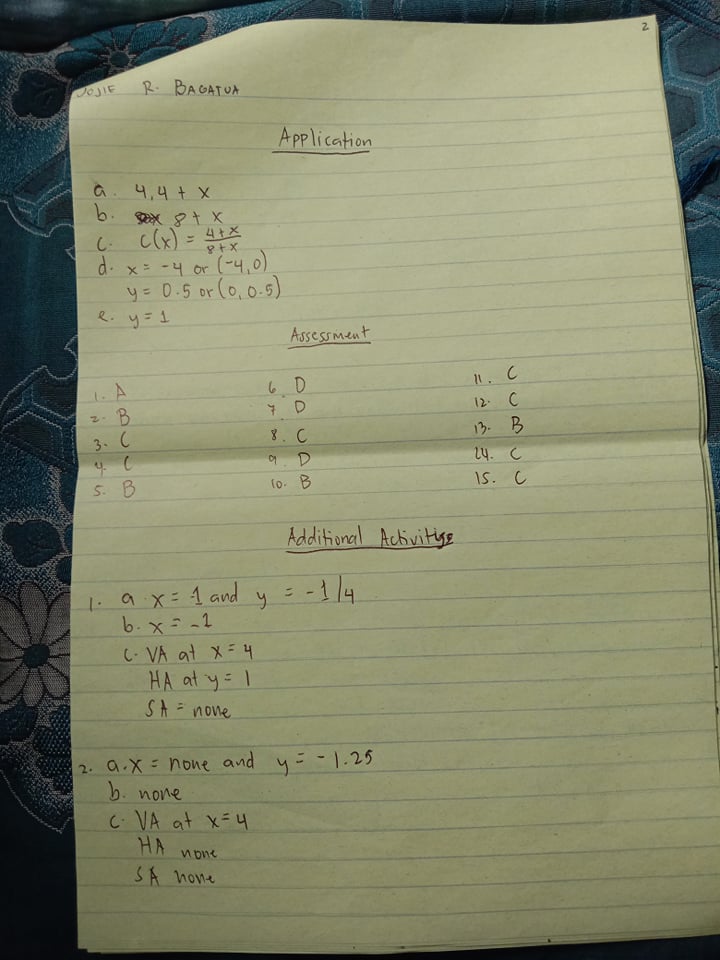 2
JOJIE R. BAGATUA
Application
a. 4, 4 + x
b. 8 + x
c. C(x) = 4+x / 8+x
d. x = -4 or (-4,0)
y = 0.5 or (0, 0.5)
e. y = 1
Assessment
1. A
2. B
3. C
4. C
5. B
6. D
7. D
8. C
9. D
10. B
11. C
12. C
13. B
14. C
15. C
Additional Activities
1. a. x = -1 and y = -1/4
b. x = -1
c. VA at x = 4
HA at y = 1
SA = none
2. a. x = none and y = -1.25
b. none
c. VA at x = 4
HA none
SA none